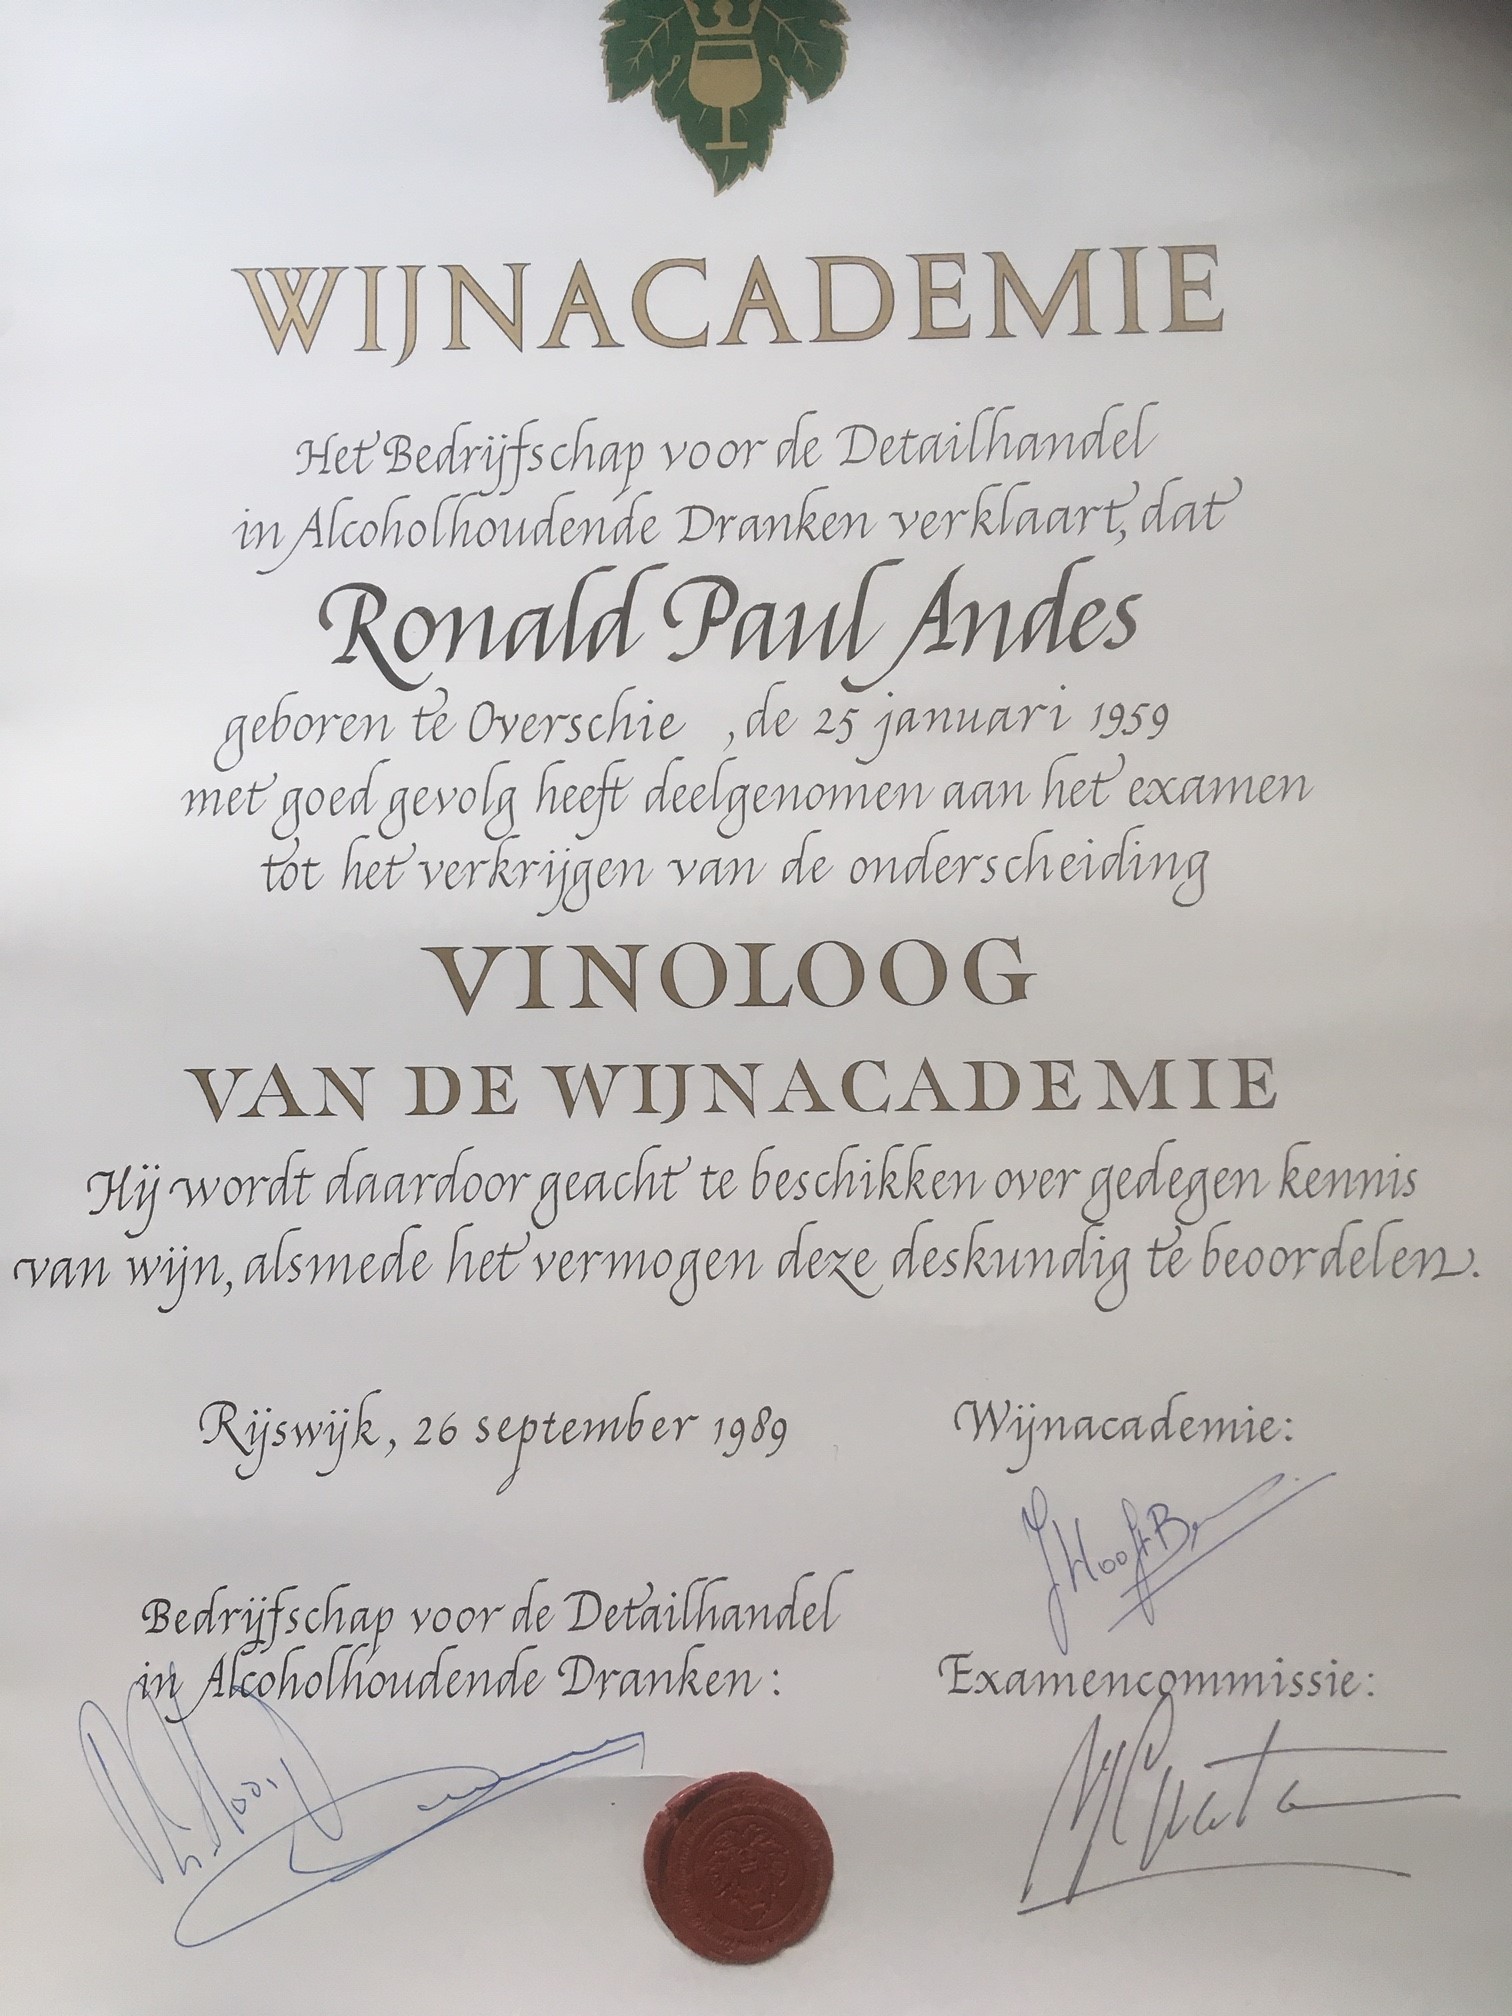 WIJNACADEMIE
Het Bedrijfschap voor de Detailhandel
in Alcoholhoudende Dranken verklaart, dat
Ronald Paul Andes
geboren te Overschie , de 25 januari 1959
met goed gevolg heeft deelgenomen aan het examen
tot het verkrijgen van de onderscheiding
VINOLOOG
VAN DE WIJNACADEMIE
Hij wordt daardoor geacht te beschikken over gedegen kennis
van wijn, alsmede het vermogen deze deskundig te beoordelen.
Rijswijk, 26 september 1989
Wijnacademie:
Bedrijfschap voor de Detailhandel
in Alcoholhoudende Dranken:
Examencommissie: